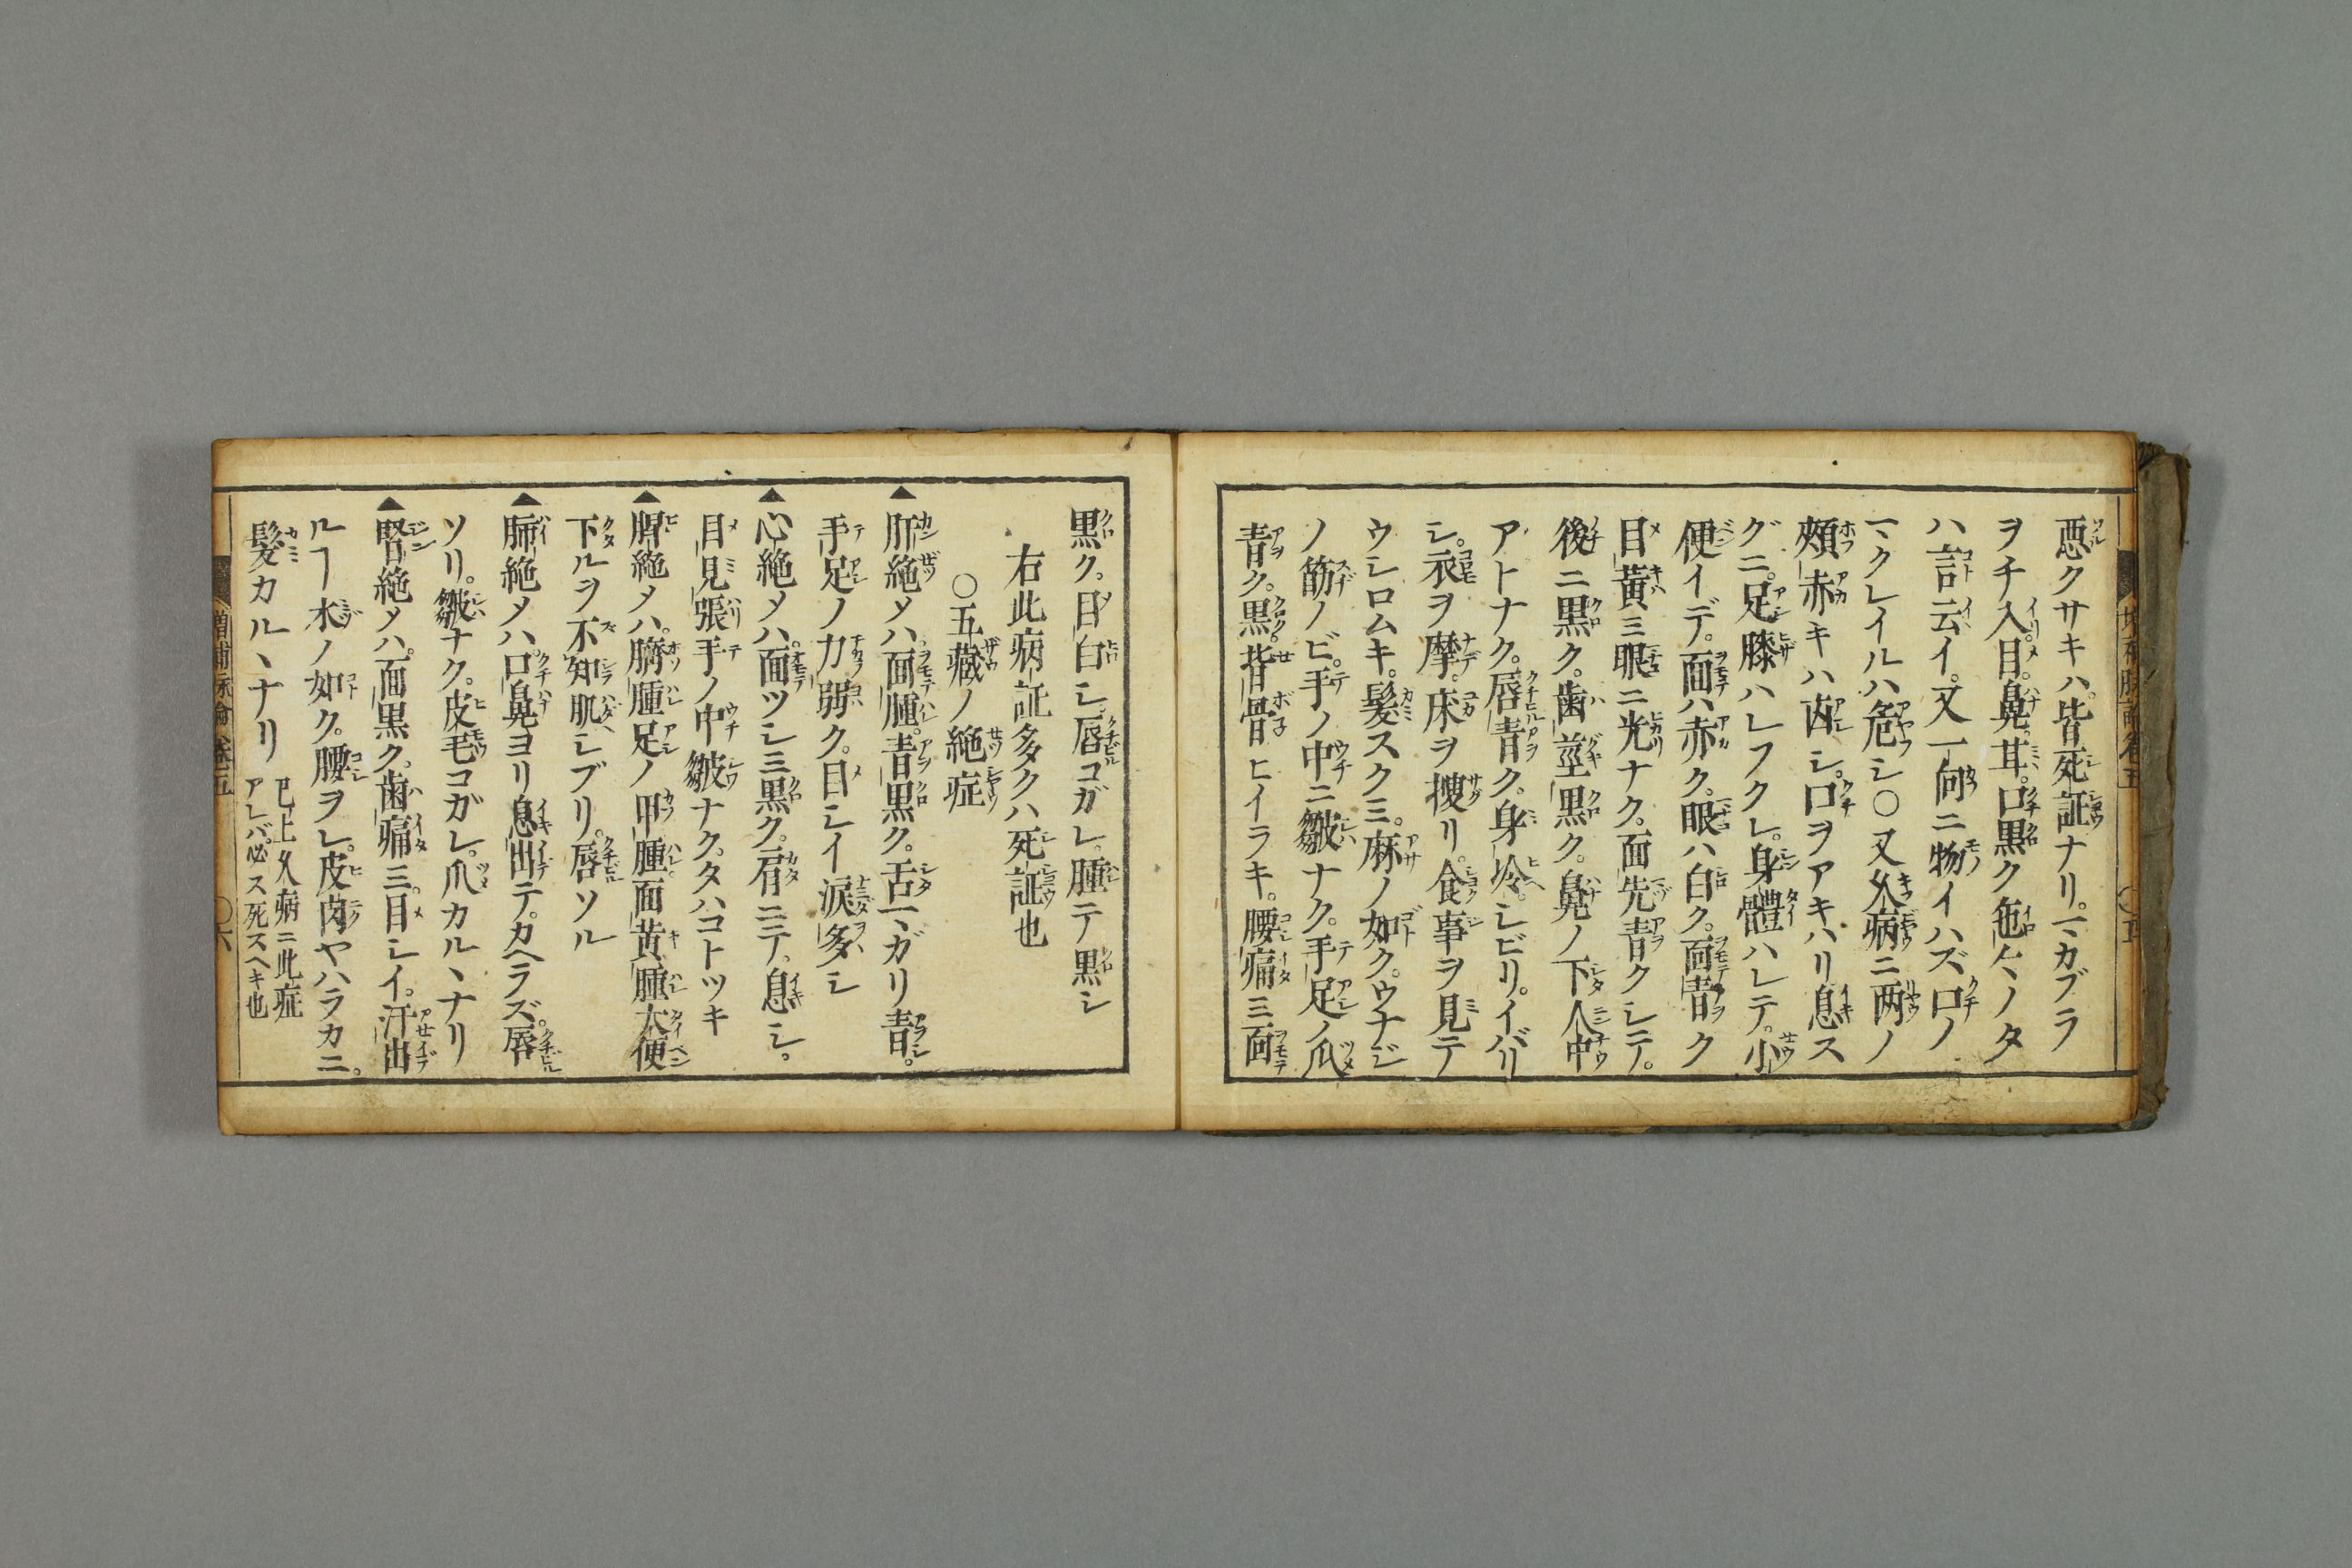 悪クサキハ。皆死証ナリ。マカブラ
ヲチ入。目。鼻。耳。口黒ク。色々ノタ
ハ言云イ。又一向ニ物イハズ口ノ
マクレイルハ危シ〇又久病ニ両ノ
頬赤キハ凶シ。口ヲアキハリ息ス
グニ。足膝ハレフクレ。身體ハレテ。小
便イデ。面ハ赤ク。眼ハ白ク。面青ク
目黄ミ眼ニ光ナク。面先青クシテ。
後ニ黒ク。歯莖黒ク。鼻ノ下人中
アトナク。唇青ク。身冷。シビリ。イバリ
シ。衣ヲ摩。床ヲ捜リ。食事ヲ見テ
ウシロムキ。髪スクミ。麻ノ如ク。ウナジ
ノ筋ノビ。手ノ中ニ皺ナク。手足ノ爪
青ク。黒。背骨ヒイラキ。腰痛ミ面
黒ク。目白シ。唇コガレ。腫テ黒シ
右此病証多クハ死証也
〇五蔵ノ絶症
▲肝絶メハ。面腫。青黒ク。舌マガリ青。
手足ノ力弱ク。目シイ涙多シ
▲心絶メハ。面ツシミ黒ク。肩ニテ。息シ。
目見張手ノ中皺ナク。タハコトツキ
▲脾絶メハ。臍腫足ノ甲腫面黄腫大便
下ルヲ不知肌シブリ。唇ソル
▲肺絶メハ。口鼻ヨリ息出テ。カヘラズ。唇
ソリ。皺ナク。皮毛コガレ。爪カルヽナリ
▲腎絶メハ。面黒ク。歯痛ミ。目シイ。汗出
ルヿ水ノ如ク。腰ヲレ。皮肉ヤハラカニ。
髪カルヽナリ
已上久病ニ此症
アレバ。必ス死スヘキ也
増補脉論 巻五 〇六